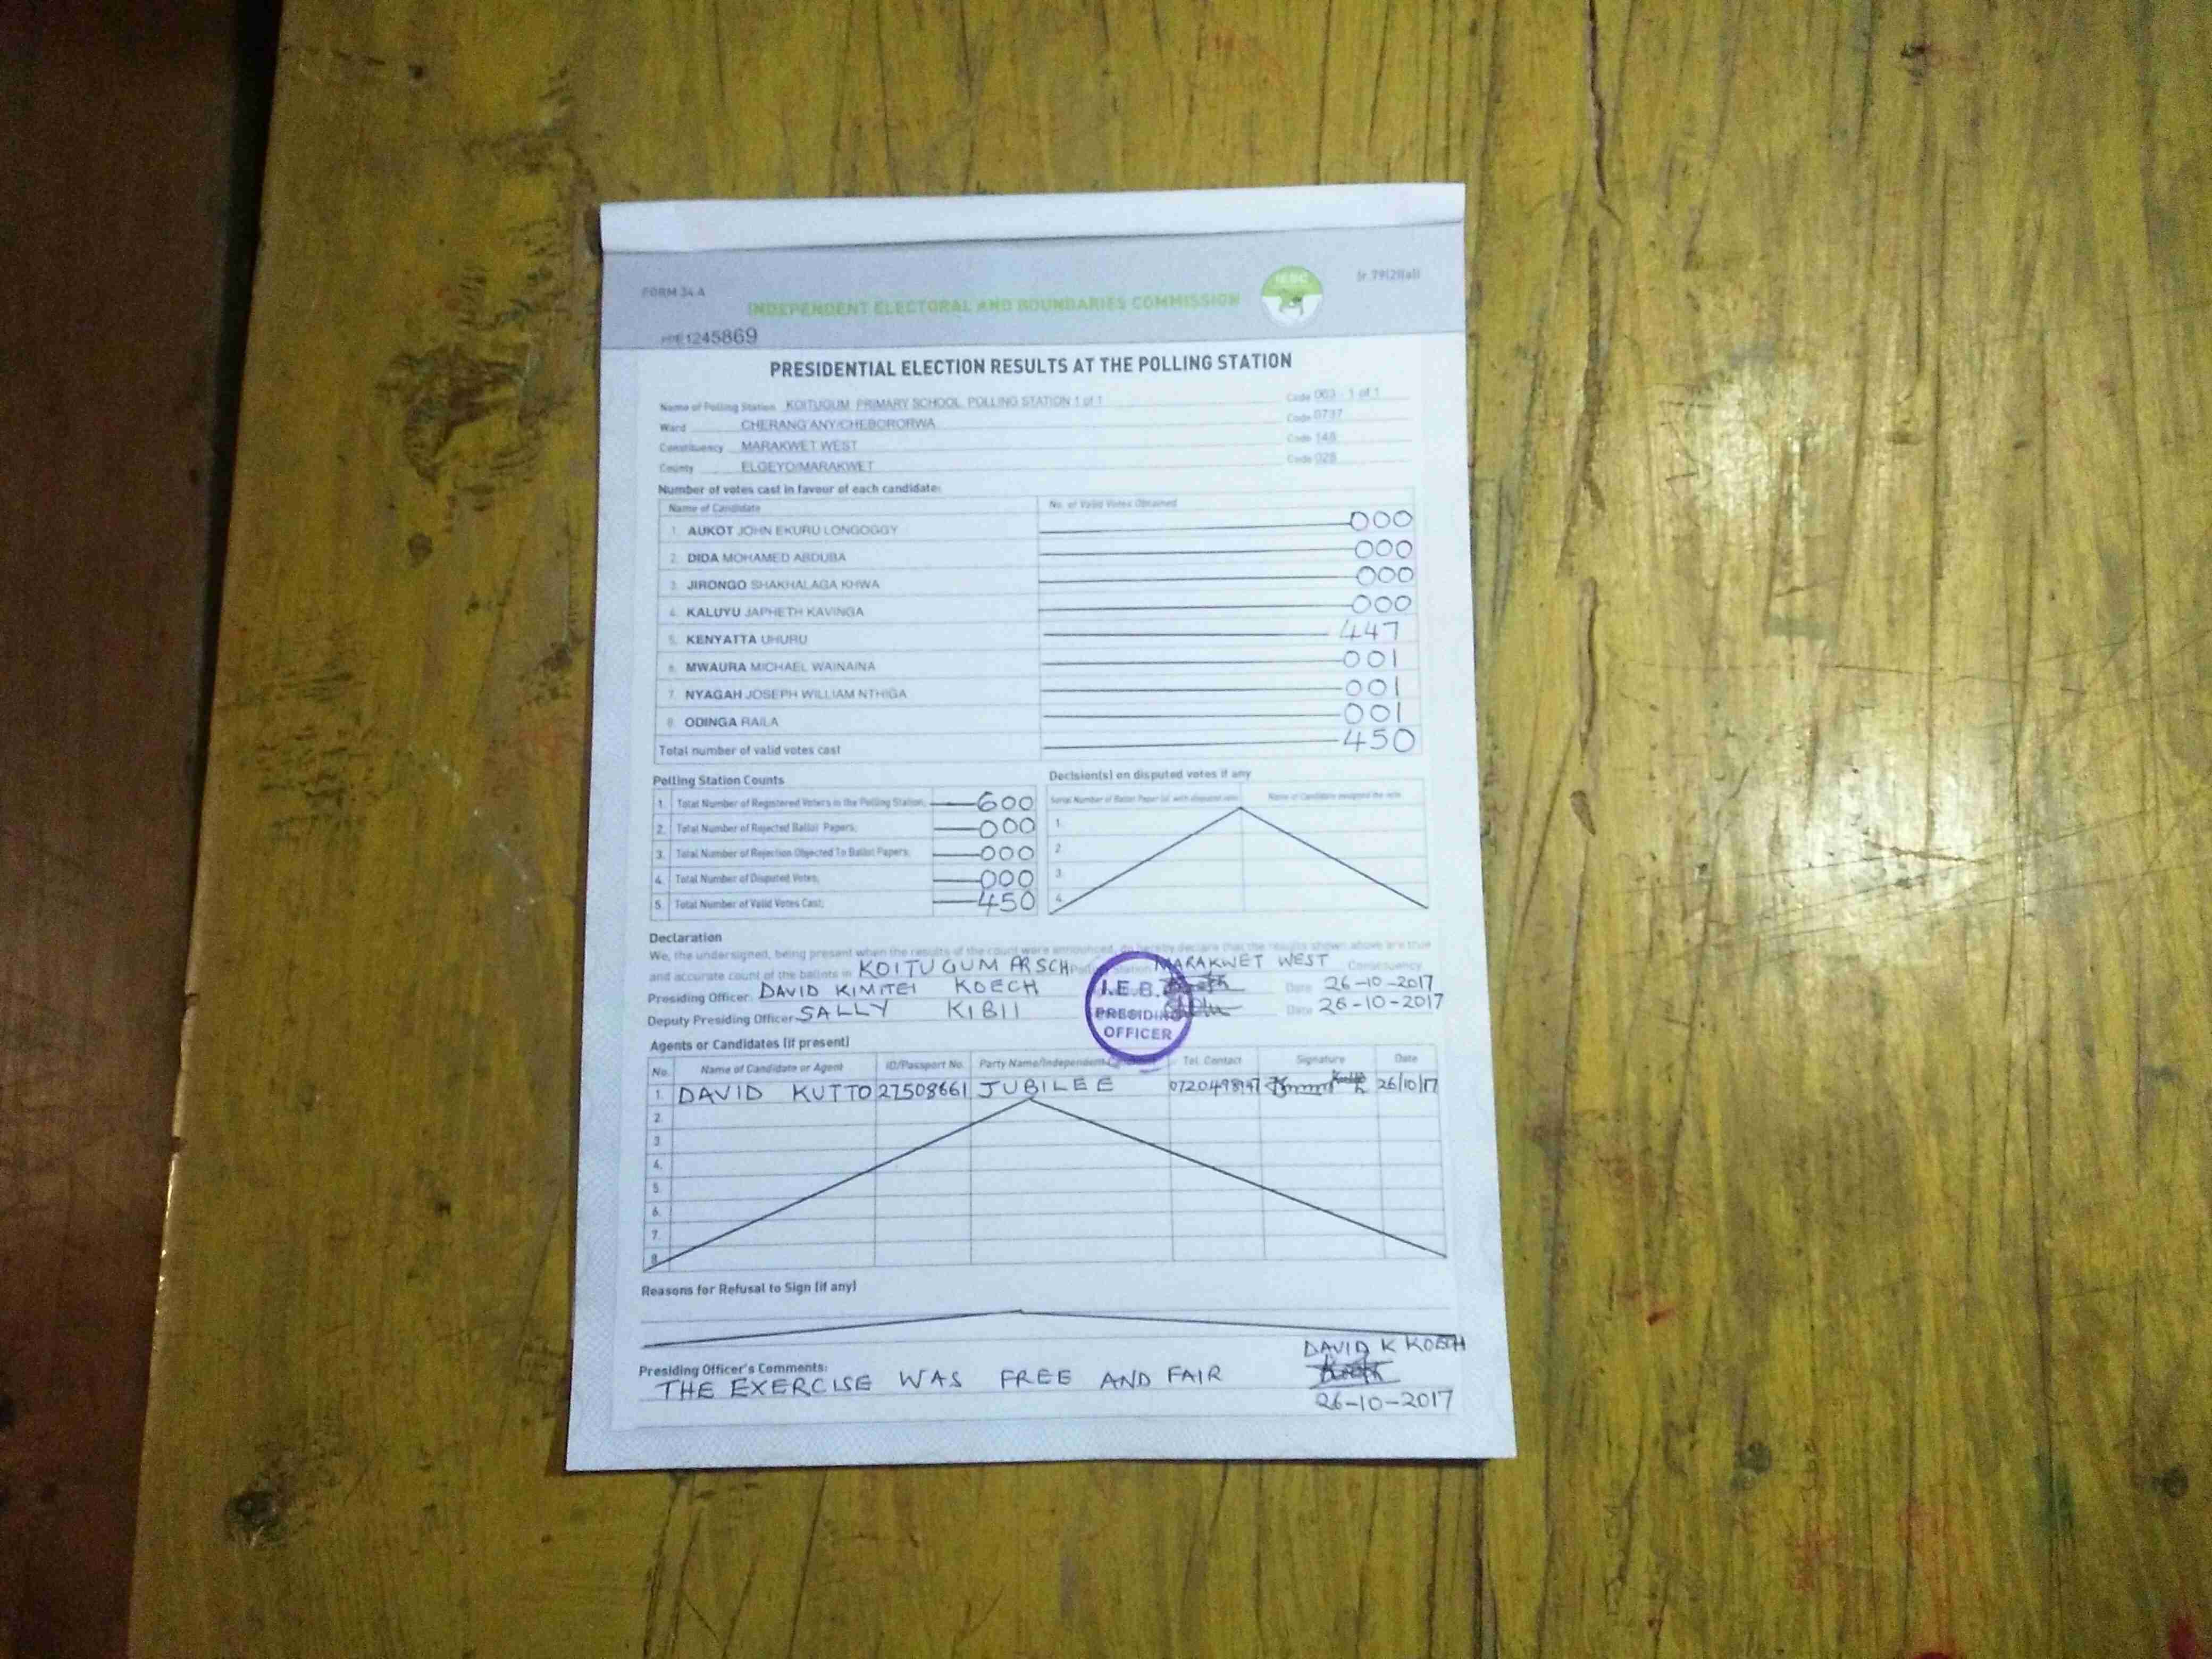 FORM 34 A
(r. 79(2)(a))
INDEPENDENT ELECTORAL AND BOUNDARIES COMMISSION
IEBC
1245869
PRESIDENTIAL ELECTION RESULTS AT THE POLLING STATION
Name of Polling Station KOITUGUM PRIMARY SCHOOL POLLING STATION 1 of 1 Code 063 - 1 of 1
Ward CHERANG'ANY/CHEBORORWA Code 0737
Constituency MARAKWET WEST Code 148
County ELGEYO/MARAKWET Code 028
Number of votes cast in favour of each candidate:
Name of Candidate No. of Valid Votes Obtained
1. AUKOT JOHN EKURU LONGOGGY 000
2. DIDA MOHAMED ABDUBA 000
3. JIRONGO SHAKHALAGA KHWA 000
4. KALUYU JAPHETH KAVINGA 000
5. KENYATTA UHURU 447
6. MWAURA MICHAEL WAINAINA 001
7. NYAGAH JOSEPH WILLIAM NTHIGA 001
8. ODINGA RAILA 001
Total number of valid votes cast 450
Polling Station Counts
1. Total Number of Registered Voters in the Polling Station; 600
2. Total Number of Rejected Ballot Papers; 000
3. Total Number of Rejection Objected To Ballot Papers; 000
4. Total Number of Disputed Votes; 000
5. Total Number of Valid Votes Cast; 450
Decision(s) on disputed votes if any
Serial Number of Ballot Paper (s) with disputed vote Name of Candidate assigned the vote
1.
2.
3.
4.
Declaration
We, the undersigned, being present when the results of the count were announced, do hereby declare that the results shown above are true
and accurate count of the ballots in KOITUGUM PR SCH Polling Station MARAKWET WEST Constituency
Presiding Officer: DAVID KIMITEI KOECH Date 26-10-2017
Deputy Presiding Officer SALLY KIBII Date 26-10-2017
I.E.B.C
PRESIDING
OFFICER
Agents or Candidates (if present)
No. Name of Candidate or Agent ID/Passport No. Party Name/Independent Candidate Tel. Contact Signature Date
1. DAVID KUTTO 27508661 JUBILEE 26/10/17
2.
3.
4.
5.
6.
7.
8.
Reasons for Refusal to Sign (if any)
Presiding Officer's Comments:
THE EXERCISE WAS FREE AND FAIR
DAVID K KOECH
26-10-2017